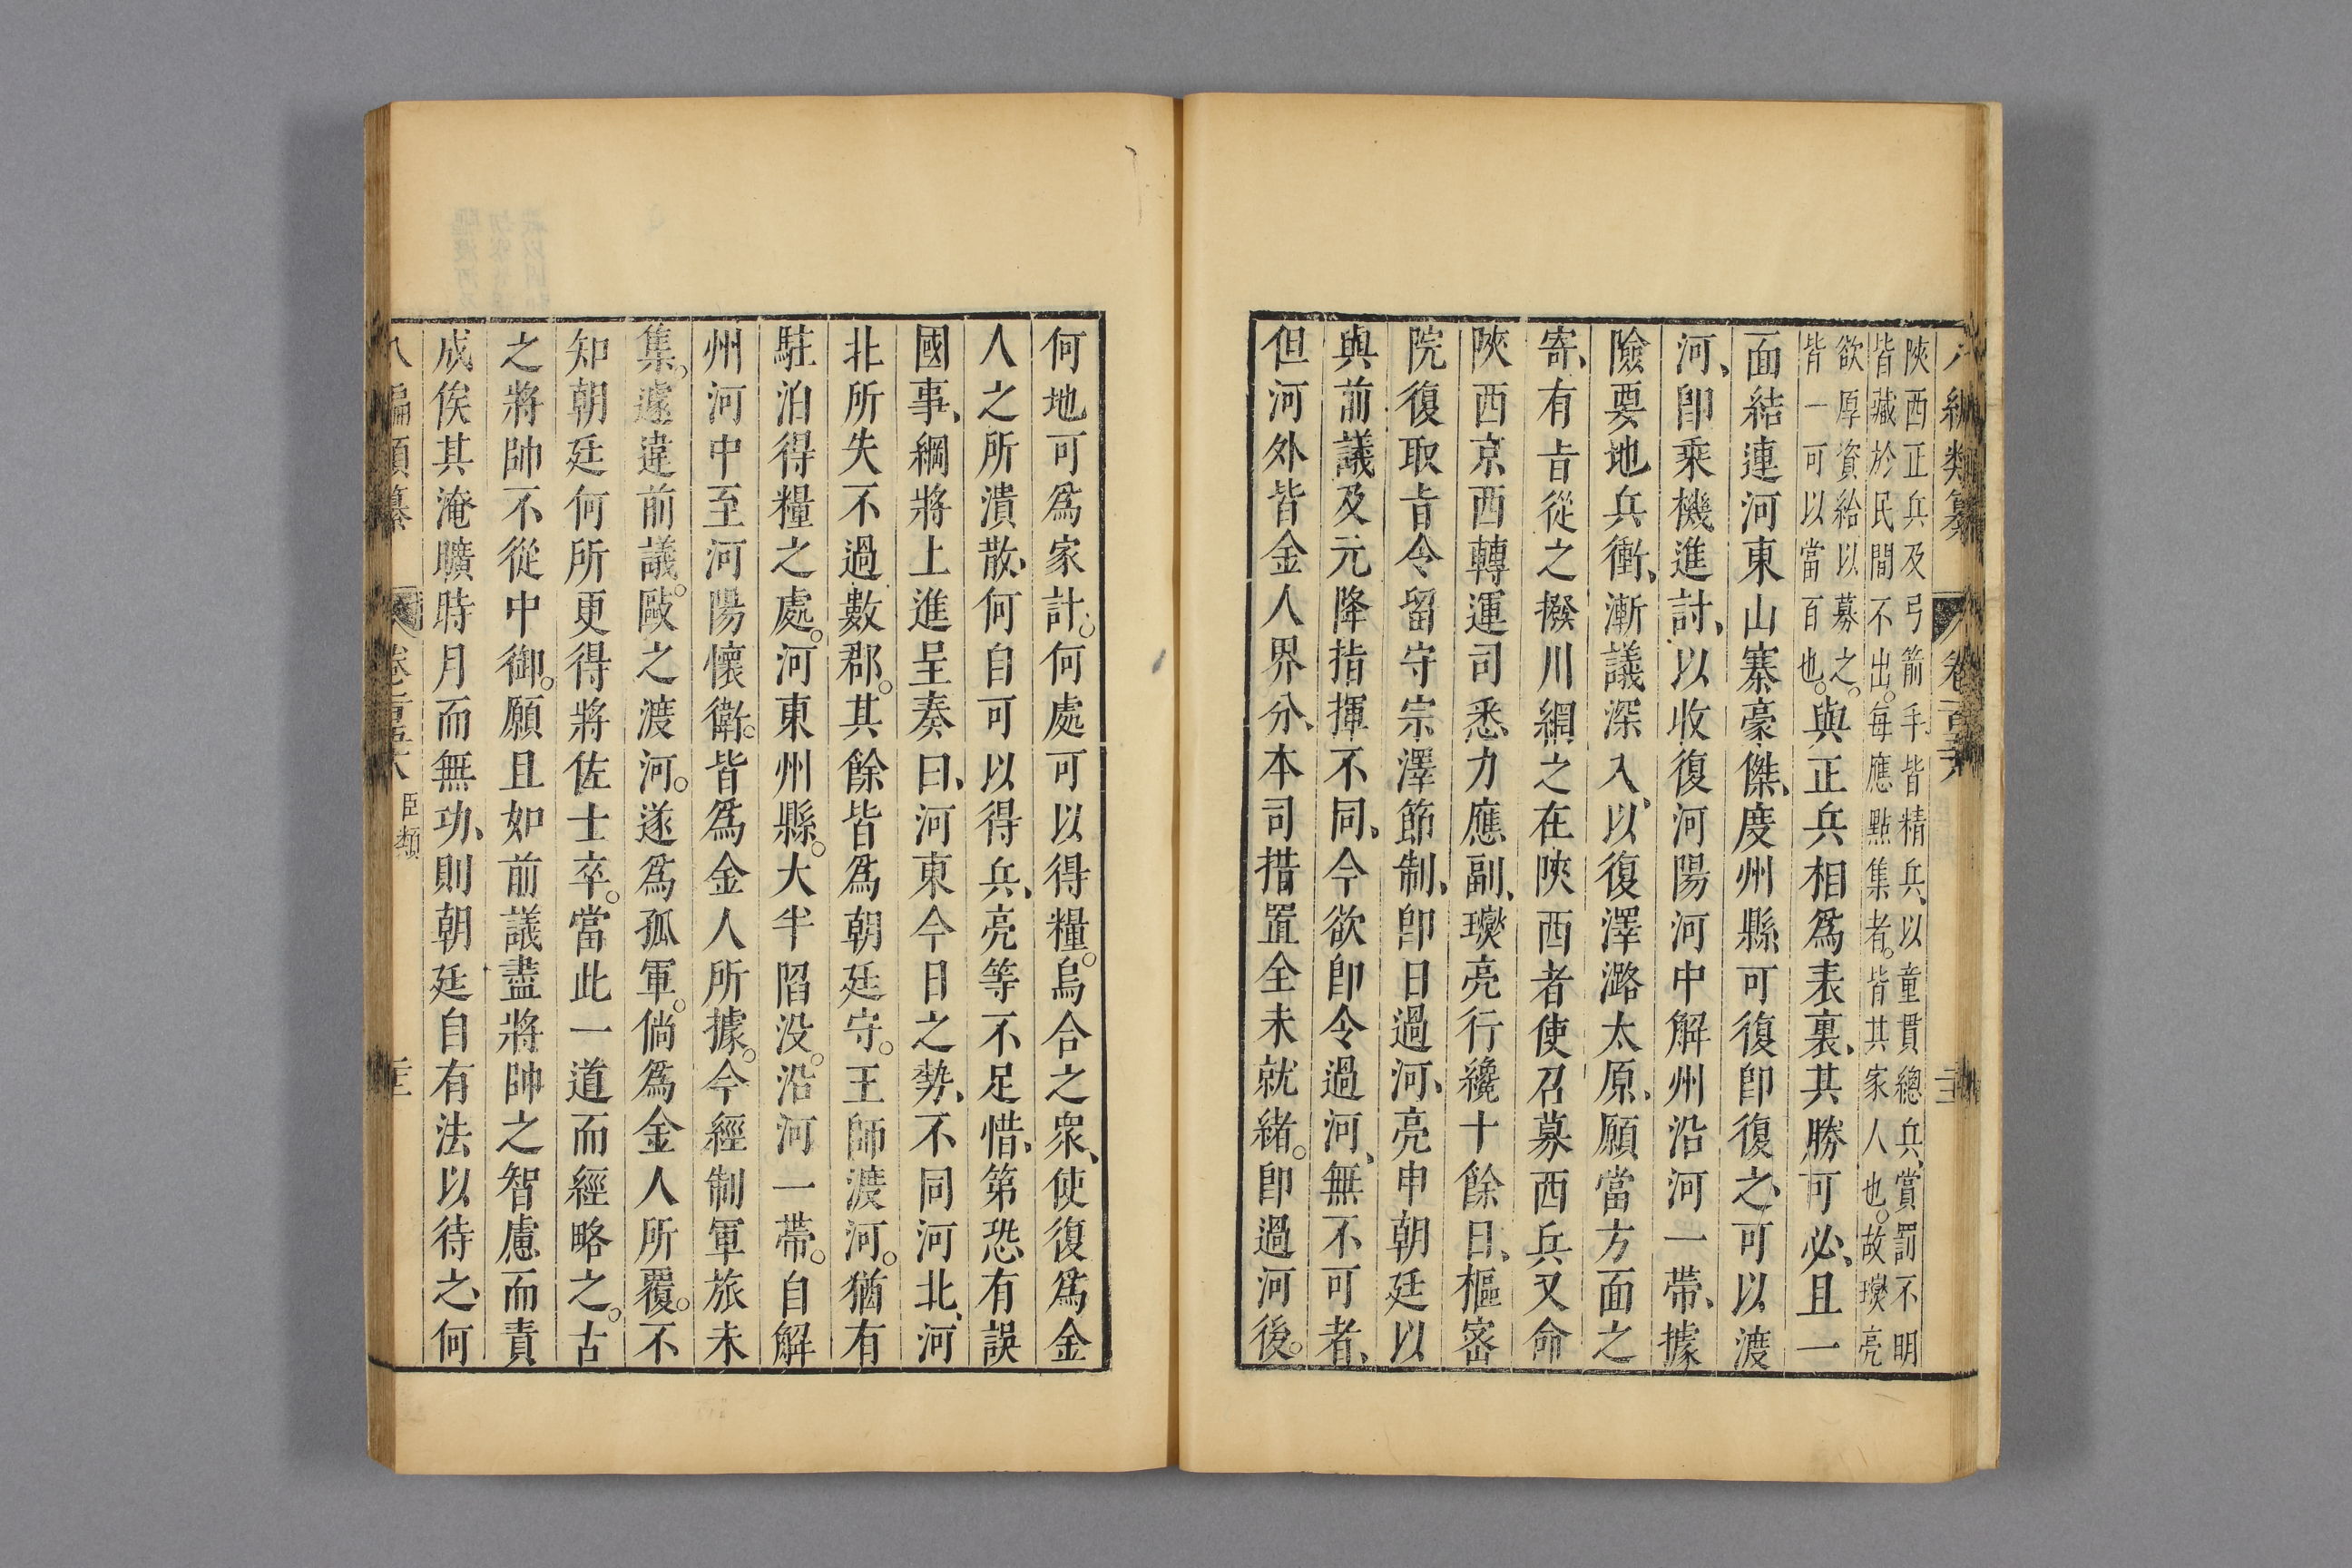 八編類纂　卷百　三
陜西正兵及弓箭手、皆精兵、以童貫總兵、賞罰不明
皆藏於民間不出。每應點集者。皆其家人也。故瓊亮
欲厚資給以募之。
皆一可以當百也。與正兵相爲表裏、其勝可必、且一
面結連河東山寨豪傑、度州縣可復卽復之、可以渡
河、卽乘機進討、以收復河陽河中解州沿河一帶、據
險要地兵衝、漸議深入、以復澤潞太原、願當方面之
寄、有旨從之撥川綱之在陜西者使召募西兵又命
陜西京西轉運司悉力應副、瓊亮行纔十餘日、樞密
院復取旨令留守宗澤節制、卽日過河、亮申朝廷以
與前議及元降指揮不同、今欲卽令過河、無不可者、
但河外皆金人界分、本司措置全未就緒。卽過河後。
何地可爲家計。何處可以得糧。烏合之衆、使復爲金
人之所潰散、何自可以得兵、亮等不足惜、第恐有誤
國事、綱將上進呈奏曰、河東今日之勢、不同河北、河
北所失不過數郡。其餘皆爲朝廷守。王師渡河。猶有
駐泊得糧之處。河東州縣。大半陷没。沿河一帶。自解
州河中至河陽懷衞。皆爲金人所據。今經制軍旅未
集。遽違前議。敺之渡河。遂爲孤軍。倘爲金人所覆。不
知朝廷何所更得將佐士卒。當此一道而經略之。古
之將帥不從中御。願且如前議盡將帥之智慮而責
成俟其淹曠時月而無功、則朝廷自有法以待之、何
八編類纂　卷　臣類